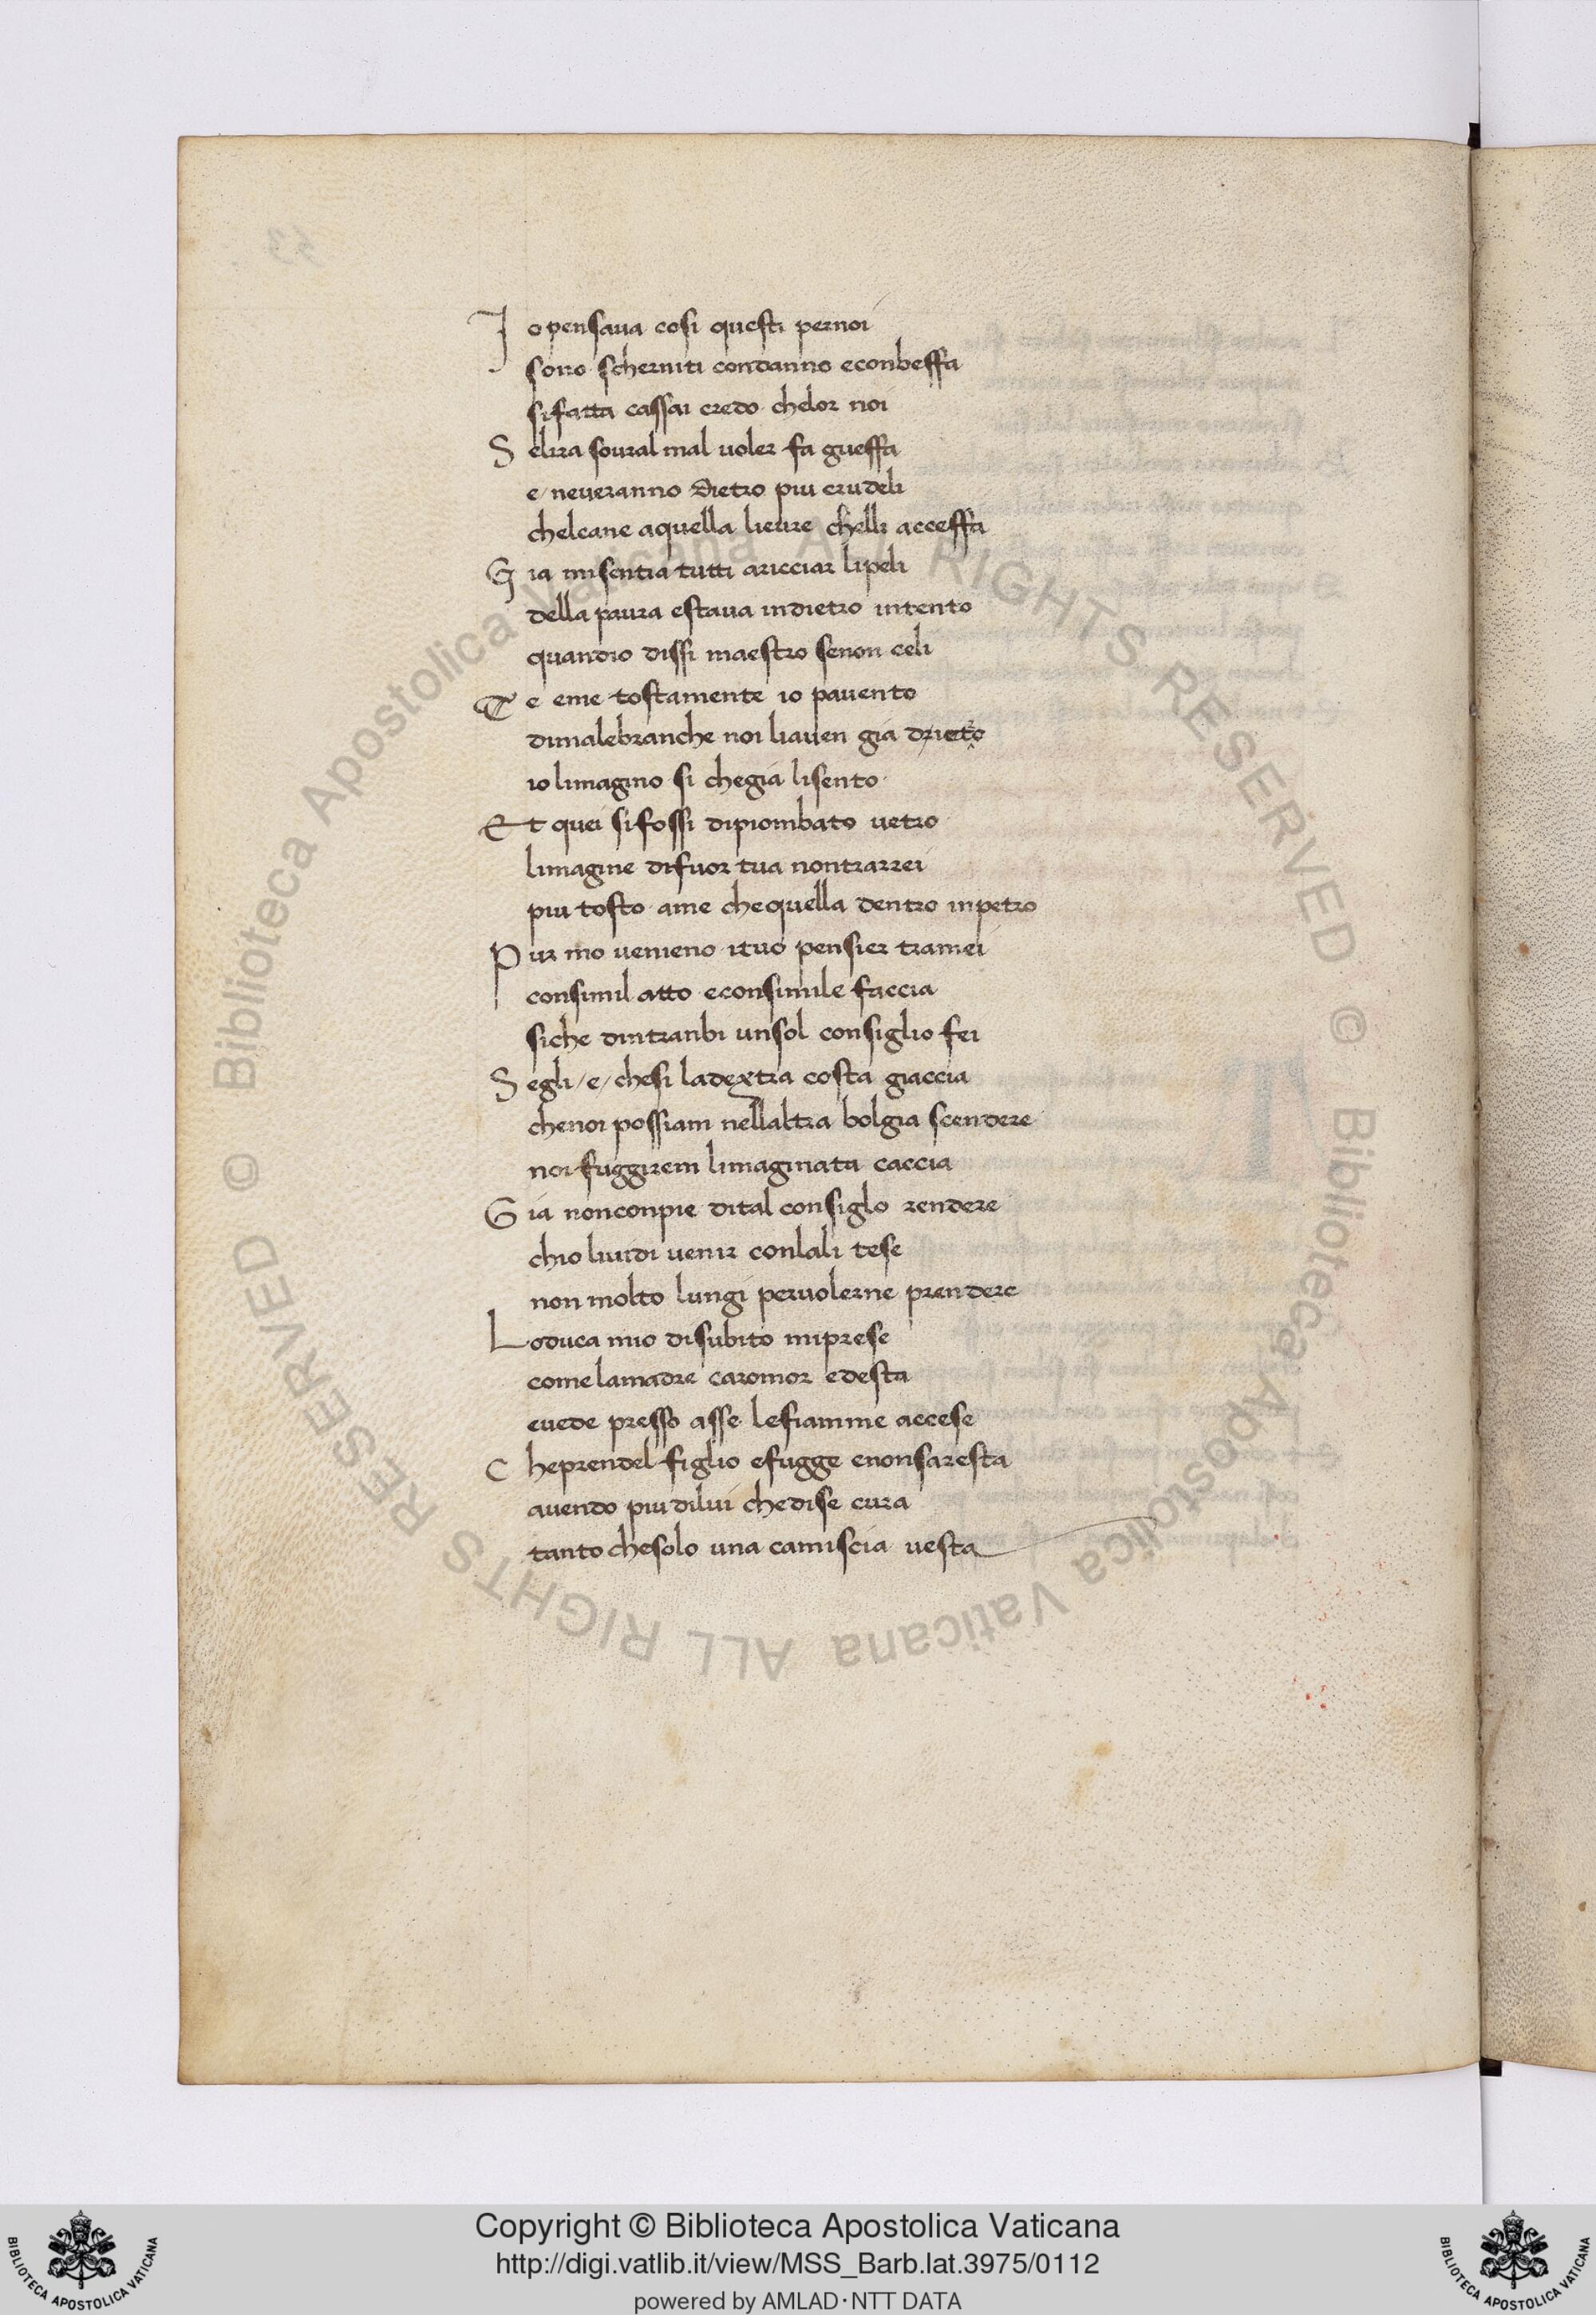 Io pensava cosi questi pernoi
sono scherniti condanno econbeffa
sifatta cassai credo chelor noi
S elira sovral mal uoler fa gueffa
e/ neveranno dietro piu crudeli
chelcane aquella lieure chelli acceffa
G ia misentia tutti aricciar lipeli
della paura estava indietro intento
quandio dissi maestro senon celi
T e eme tostamente io pavento
dimalebranche noi liaven gia drieto
io limagino si chegia lisento
Et quei sifossi dipiombato vetro
limagine difuor tua nontrarrei
piu tosto ame chequella dentro inpetro
P ur mo venieno ituo pensier tramei
consimil atto econsimile faccia
siche dintranbi unsol consiglio fei
S egli/e/ chesi ladextra costa giaccia
chenoi possiam nellaltra bolgia scendere
noi fuggirem limaginata caccia
G ia nonconpie dital consiglo rendere
chio liuidi venir conlali tese
non molto lungi pervolerne prendere
Loduca mio disubito miprese
comelamadre caromor edesta
euede presso asse lefiamme accese
C heprendel figlio efugge enonsaresta
avendo piudilui chedise cura
tanto chesolo una camiscia vesta
© Biblioteca Apostolica Vaticana ALL RIGHTS RESERVED © Biblioteca Apostolica Vaticana ALL RIGHTS RESERVED
Copyright © Biblioteca Apostolica Vaticana
http://digi.vatlib.it/view/MSS_Barb.lat.3975/0112
powered by AMLAD·NTT DATA
BIBLIOTECA APOSTOLICA VATICANA
BIBLIOTECA APOSTOLICA VATICANA